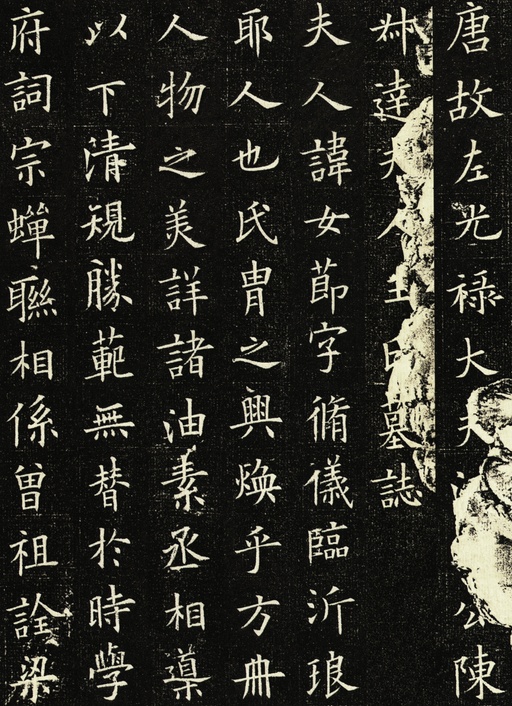 唐故左光祿大夫公陳
叔達夫人王墓誌
夫人諱女節字脩儀臨沂琅
耶人也氏胄之興煥乎方冊
人物之羙詳諸油素丞相導
以下清規勝範無替於時學
府詞宗蟬聯相係曾祖詮梁